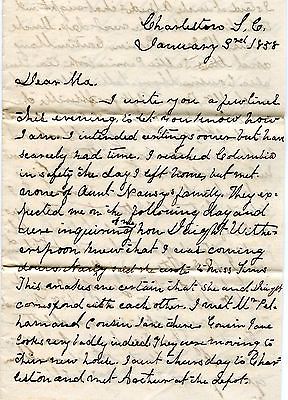 Charleston S. C.
January 3rd 1858
Dear Ma.
I write you a few lines
this evening to let you know how
I am. I intended writing sooner but have
scarcely had time. I reached Columbia
in safety the day I left home, but met
none of Aunt Nancy's family They ex=
pected me on the following day and
were inquiring how Dwight With=
erspoon knew that I was coming
down. said he wrote to Miss
This makes me certain that she and Dwight
correspond with each other. I met Mrs Pel
ham and Cousin Jane there Cousin Jane
looks very badly indeed They were moving to
their new house. I went thursday to Char
leston and met Arthur at the depot.